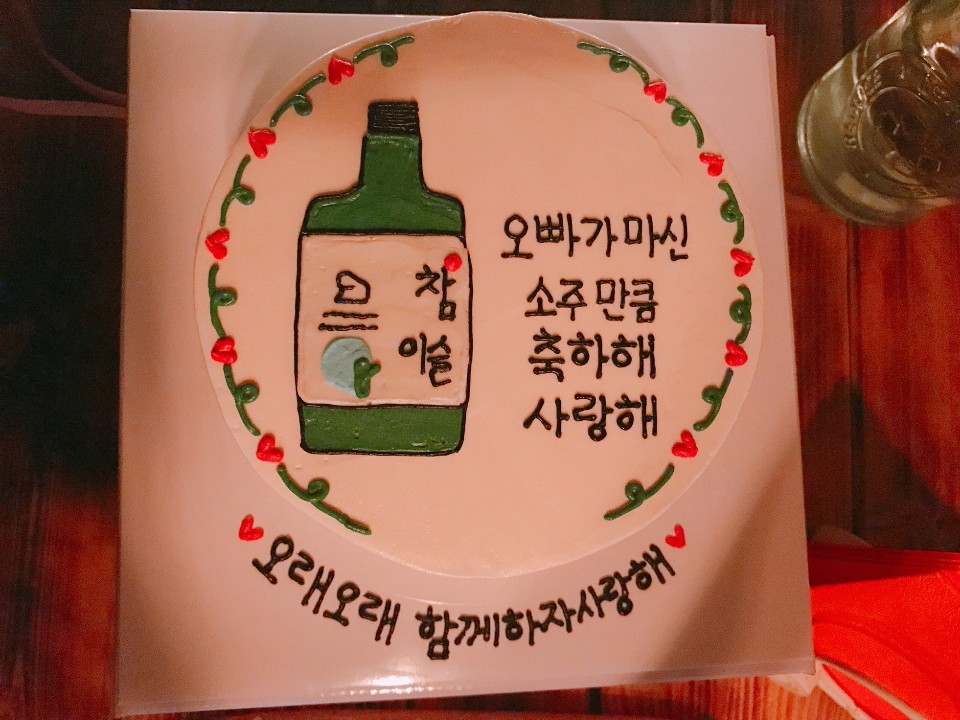 참
이슬
오빠가 마신
소주 만큼
축하해
사랑해
오래오래 함께하자 사랑해